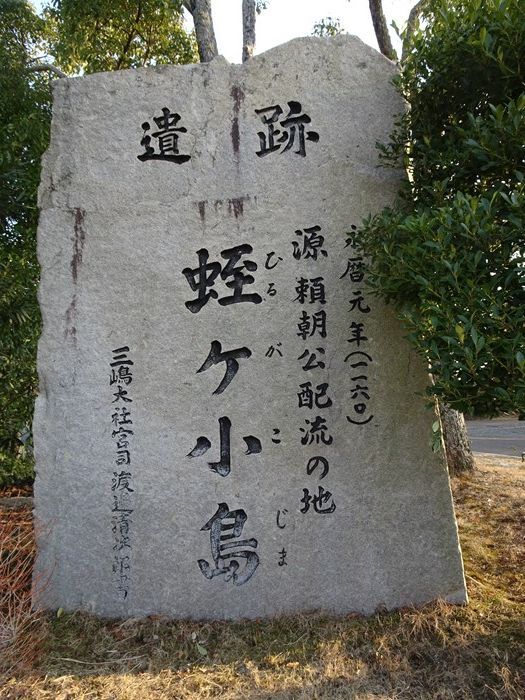 遺跡
永暦元年(一一六〇)
源頼朝公配流の地
ひるがこじま
蛭ケ小島
三嶋大社宮司渡